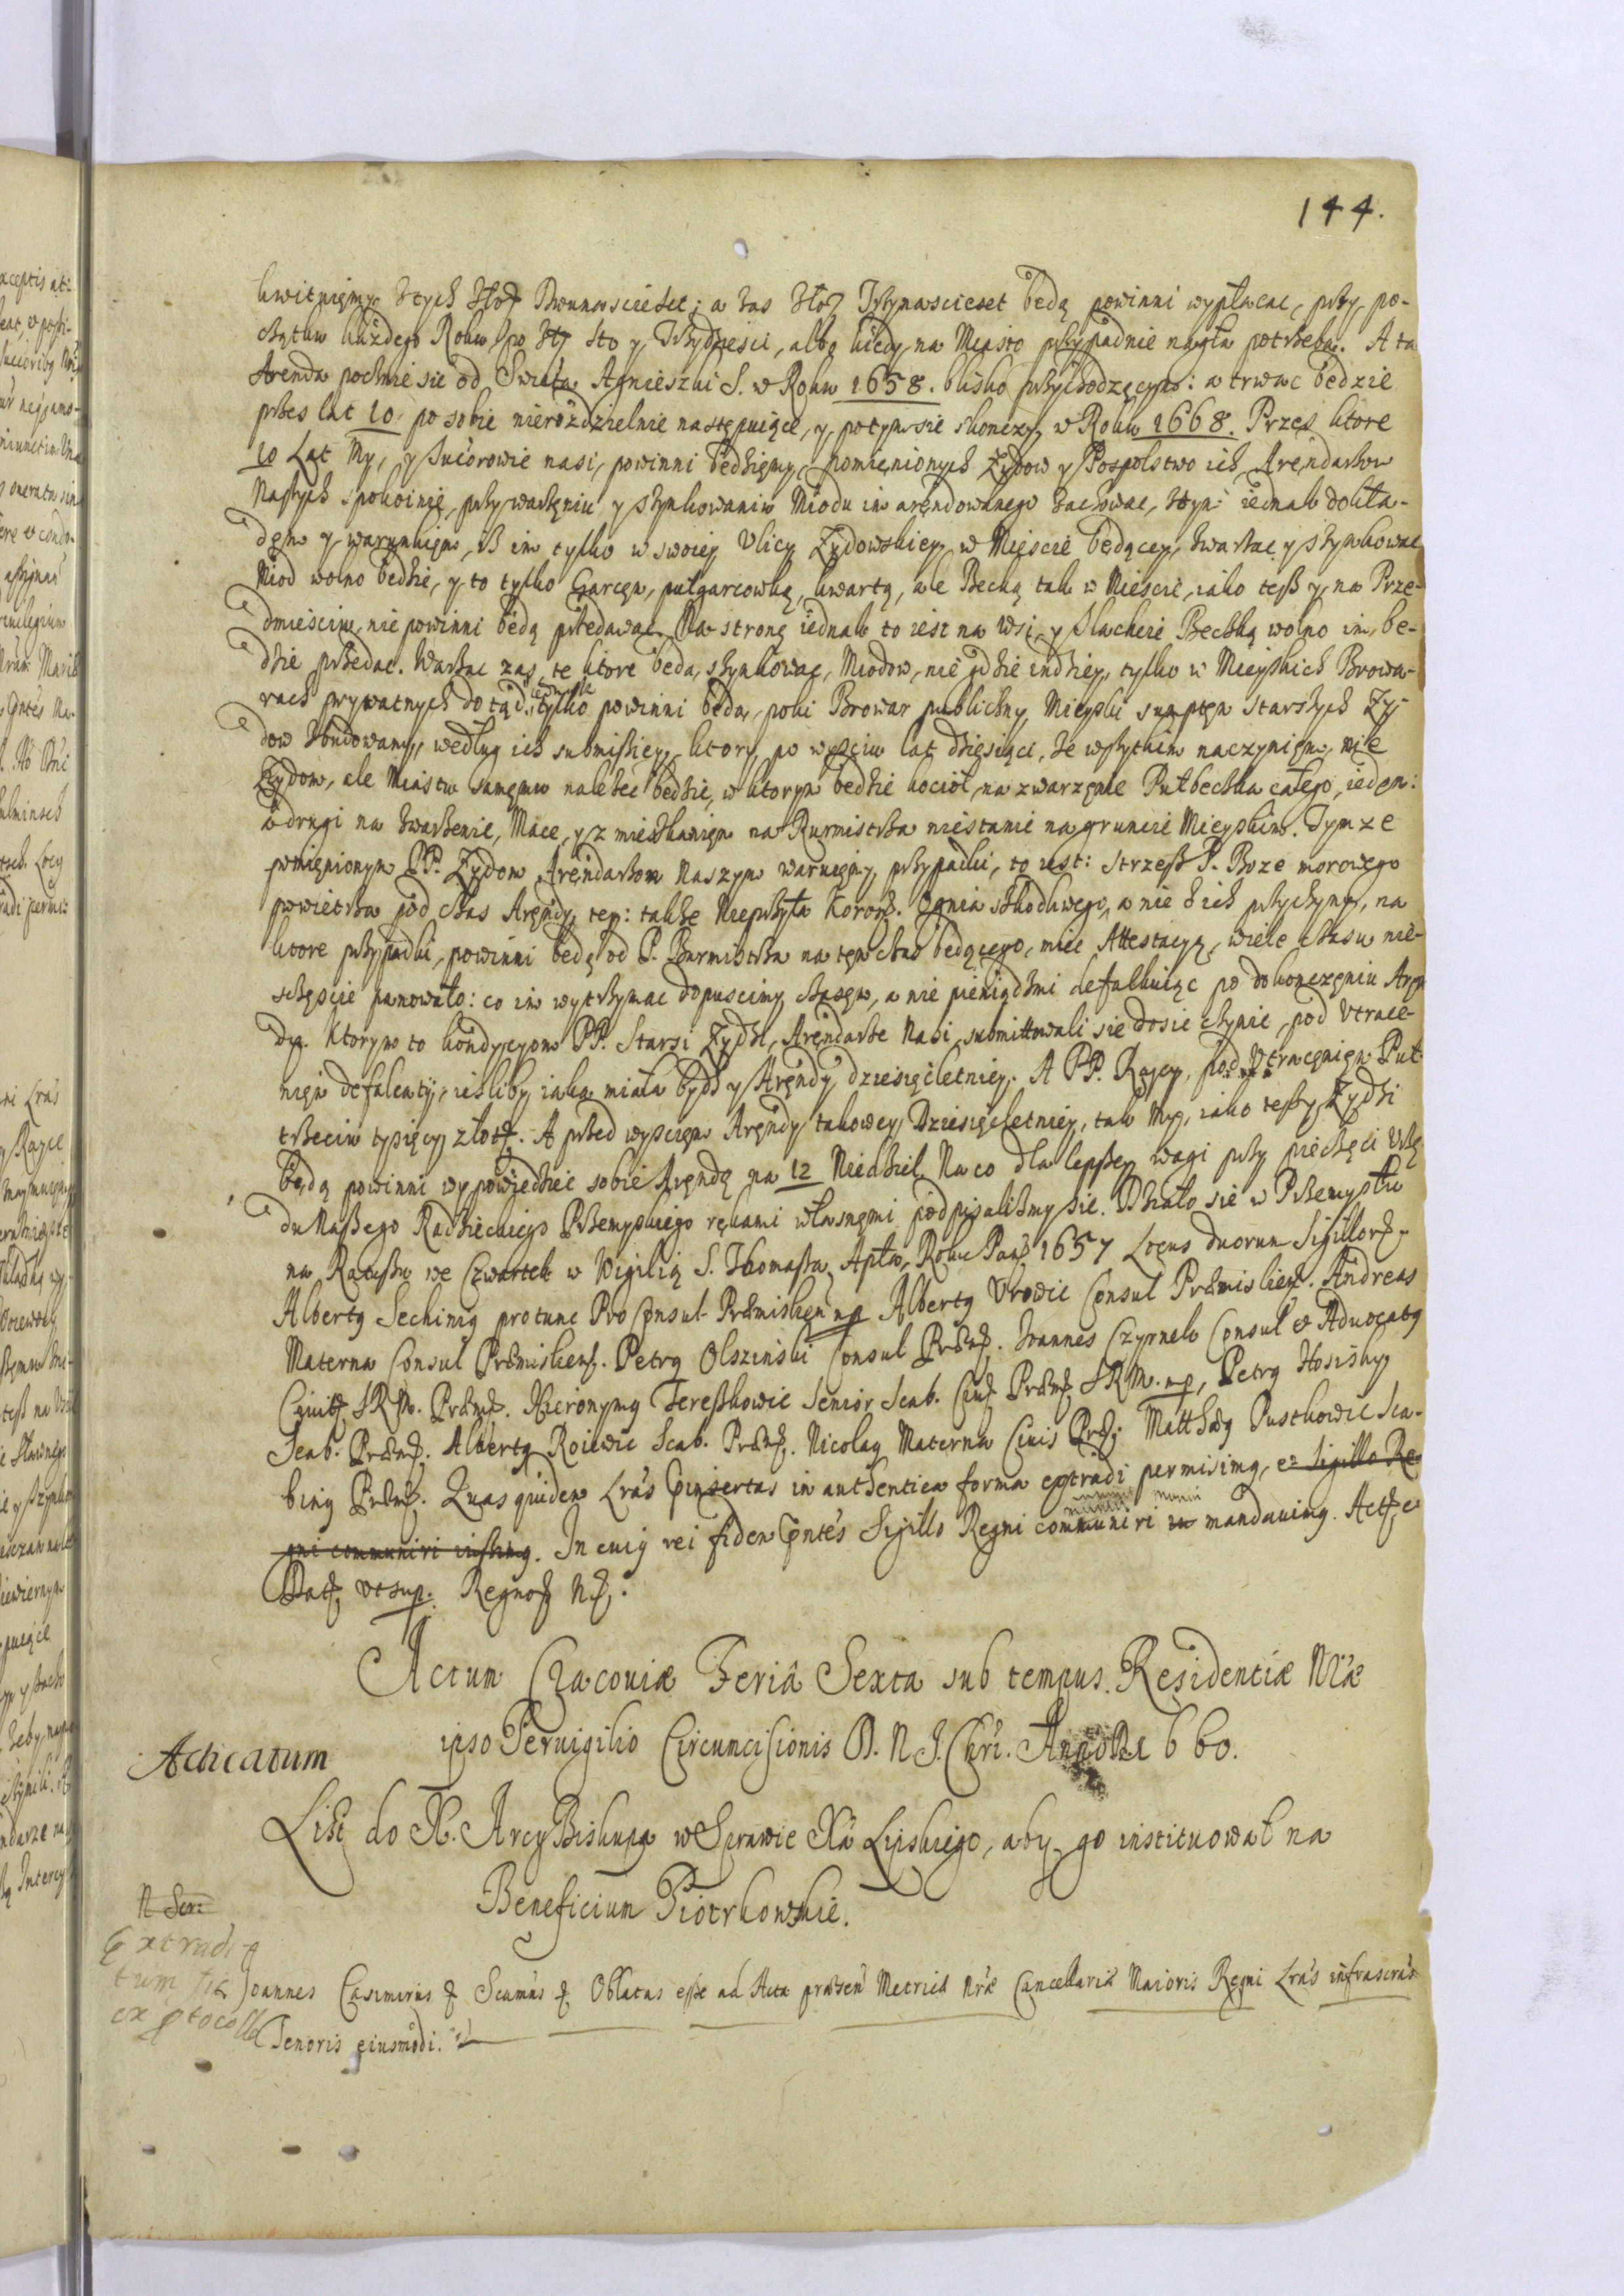 144.
kwituięmy. Ztych Złot Dwunascieset; a zas Złot Trzynascieset będą powinni wypłacac, przy po-
czątku każdego Roku, po Zł. Sto y Trzydzieści, albo kiedy na Miasto przypadnie nagła potrzeba. A ta
Arenda pocznie sie od Swięta Agnieszki S. w Roku 1658. blisko przychodzącym: a trwac będzie
przes lat 10. po sobie nierozdzielnie następuiące, y potym sie skonczy w Roku 1668. Przes ktore
10 Lat My, y Succorowie nasi, powinni będziemy, pomienionych Zydow y Pospolstwo ich, Arendarzow
Naszych spokoinie, przy warzeniu y szynkowaniu Miodu im arendowanego zachowac, ztym iednak dokła-
dem y warunkięm, iż im tylko w swoiey Vlicy Zydowskiey, w Mieście będącey, zwarzac y szynkowac
Miod wolno będzie, y to tylko Garcęm, pułgarcowką, kwartą, ale Beczką tak w Mieście, iako tesz y na Prze-
dmieściu, nie powinni będą przedawac. Na stronę iednak to iest na Wsi, y Slachcie Beczką wolno im bę-
dzie przedac. Warzac zas te ktore będą szynkowac, Miodow, nie gdzie indziey, tylko w Mieyskich Browa-
rach prywatnych dotąd iednak tylko powinni będą, poki Browar publiczny Mieyski sumptem Starszych Zy-
dow zbudowany, według ich submissiey, ktory po wyściu lat dziesiąci, ze wszytkim naczynięm, nie
Zydom, ale Miastu samęmu należeć będzie, w ktorym będzie kocioł, na zwarzęnie Pułbeczka całego, ieden:
a drugi na zwarzenie, Mace, y z mieszkanięm na Kurmistrza niestanie na gruncie Mieyskim. Tymze
pomięnionym PP. Zydom Arendarzom Naszym waruięmy przypadki, to iest: Strzesz P. Boze morowego
powietrza pod czas Arendy tey: także Nieprzyła Korony. Ognia szkodliwego, a nie z ich przyczyny, na
ktore przypadki, powinni będą od P. Burmistrza na ten czas będącego, miec Attestacyą, wiele czasu nie-
szczęście panowało: co im wytrzymac dopuscimy czasęm, a nie pieniądzmi defalkuiąc po dokonczęniu Aren
dy. Ktorym to kondycyom PP. Starsi Zydzi, Arendarze Nasi submittowali się dosic czynic, pod vtrace-
niem defalcaty, iesliby iaka miała bydz y Arendy dziesięcletniey. A PP. Raycy, pod vtracęniem Puł
trzecia tysięcy złot. A przed wyścięm Arendy takowey Dziesięcletniey, tak My, iako tesz y Zydzi
będą powinni wypowiedziec sobie Arendę na 12 Niedziel. Na co dla lepszey wagi przy pieczęci Vrzę
du Naszego Radzieckiego Przemyskiego rękami własnęmi podpisalismy sie. Działo sie w Przemyslu
na Ratuszu we Czwartek w Wigilią S. Thomasza Apła, Roku Pańs 1657 Locus duorum Sigillorz.
Alberty Sechiniy protunc Pro Consul Præmislien mp Alberty Vrowic Consul Præmisliens. Andreas
Materna Consul Præmisliens. Petry Olszinski Consul Præmis. Ioannes Czyrnek Consul et Aduocaty
Ciuit SRM. Præmis. Hieronymy Tereszkowic Senior Scab. Ciuit Præmis SRM. mp, Petry Hosiśky
Scab. Præmis. Alberty Roiewic Scab. Præmis. Nicolay Materna Ciuis Præ. Matthæy Pustkowic Sca-
biny Præmis. Quas quidem Lrãs Pinsertas in authentica forma extradi permisimy, et Sigillo Re-
gni communiri iussimy. In cuiy rei fidem Pntés Sigillo Regni communiri mandauimy. Act. et
Dat. vt sup. Regnor N.
Actum Cracouiæ Feriâ Sexta sub tempus Residentiæ Nræ
ipso Peruigilio Circumcisionis D. N. J. Chri. Anno D. 1660.
Acticatum
List do X. ArcyBiskupa w Sprawie Xa Lipskiego, aby go instituował na
Beneficium Piotrkowskie.
N Scr:
Extradi
tum sic
ex ptocollo
Joannes Casimirus & Scumus & Oblatas esse ad Acta præsen Metrices Nræ Cancellariæ Maioris Regni Lrãs infrascrãs
Tenoris eiusmodi.